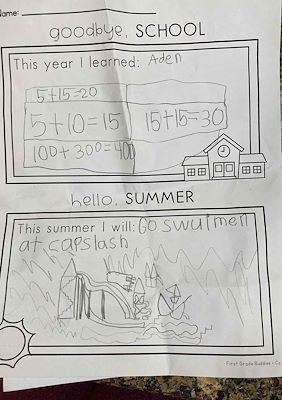 Name:
goodbye, SCHOOL
This year I learned: Aden
5+15=20
5+10=15 15+15=30
100+300=400
hello, SUMMER
This summer I will: Go swuimen
at capslash
First Grade Buddies